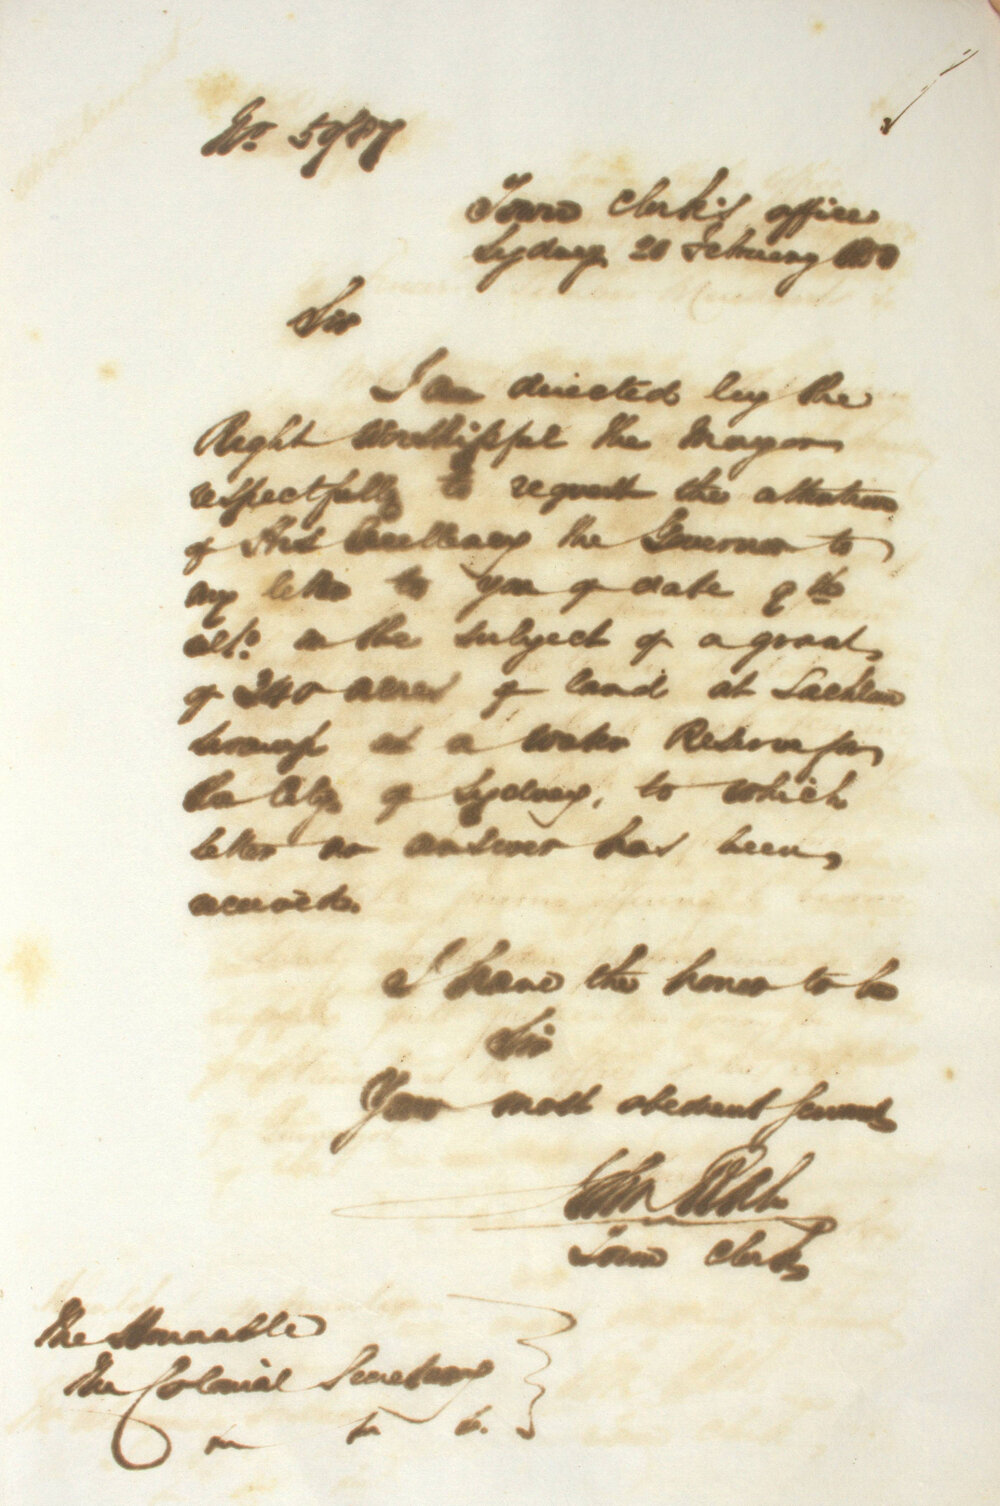 No. 59/87
Town Clerk's office
Sydney 20 February
Sir
I am directed by the
Right Worshipful the Mayor
respectfully to request the attention
of His Excellency the Governor to
my letter to you of date 9th
ulto. on the subject of a grant
of 240 acres of land at Lachlan
swamp as a water Reserve for
the City of Sydney, to which
letter no answer has been
received.
I have the honor to be
Sir
Your most obedient Servant
John
Town Clerk
The Honorable
The Colonial Secretary